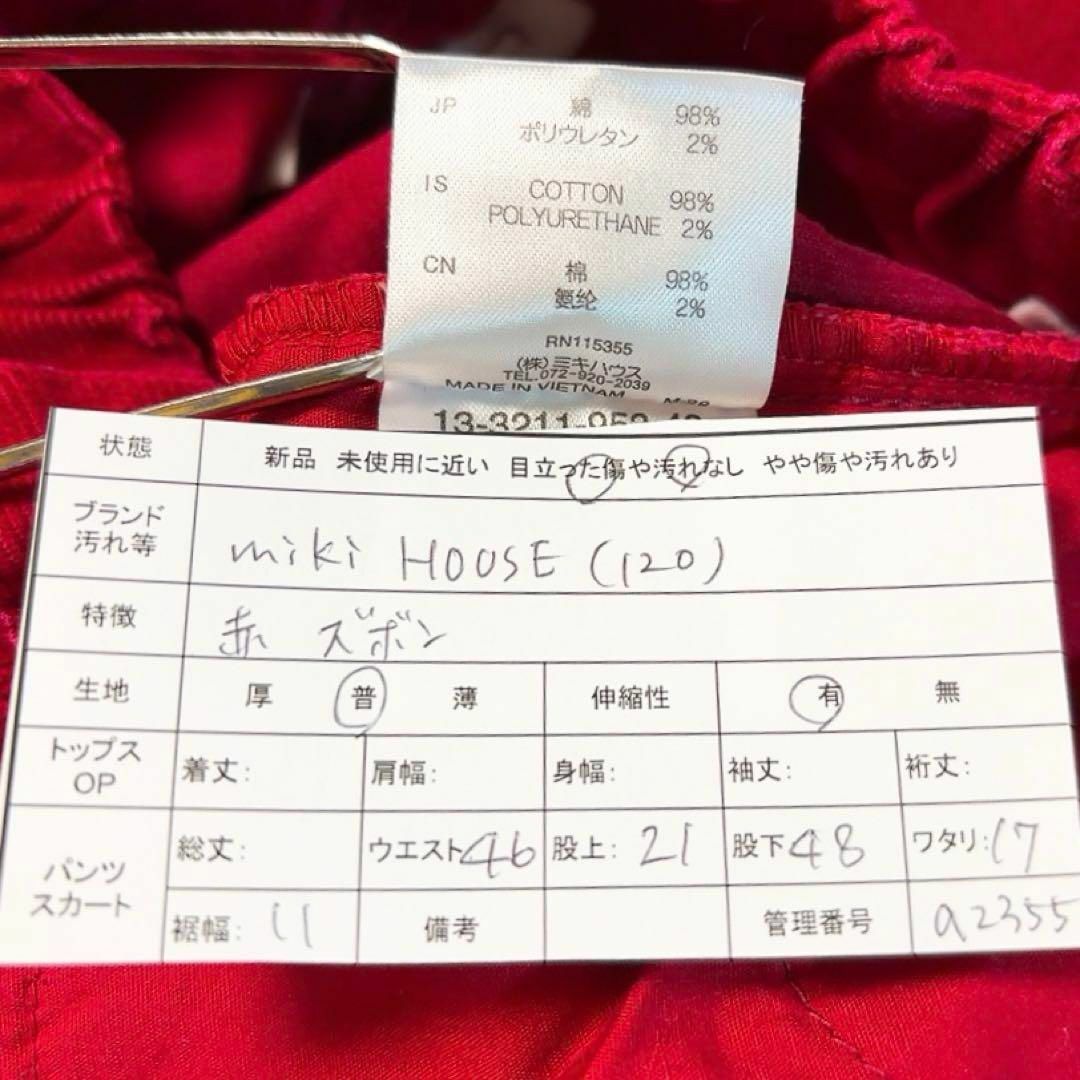 JP 綿 98%
ポリウレタン 2%
IS COTTON 98%
POLYURETHANE 2%
CN 棉 98%
氨纶 2%
RN115355
(株)ミキハウス
TEL.072-920-2039
MADE IN VIETNAM
13-3211-952
状態 新品 未使用に近い 目立った傷や汚れなし やや傷や汚れあり
ブランド
汚れ等 miki HOUSE (120)
特徴 赤 ズボン
生地 厚 普 薄 伸縮性 有 無
トップス
OP 着丈: 肩幅: 身幅: 袖丈: 裄丈:
パンツ
スカート
総丈: ウエスト46 股上: 21 股下48 ワタリ:17
裾幅: 11 備考 管理番号 a2355